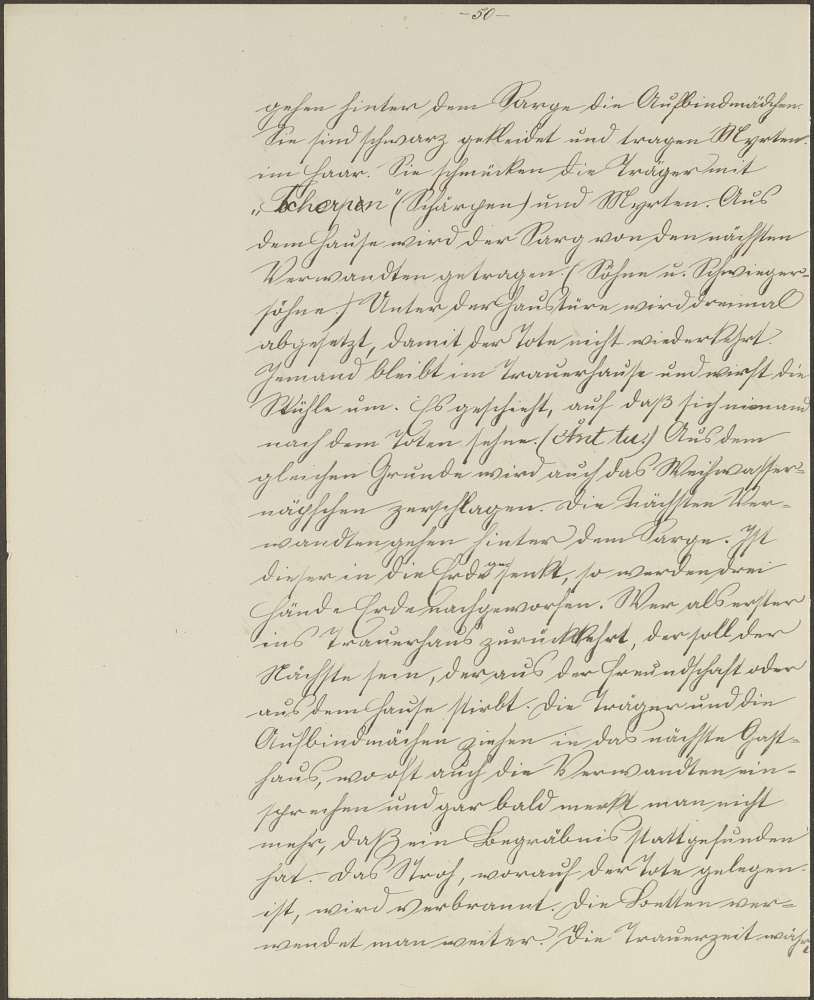 -50-
gehen hinter dem Sarge die Aufbindmädchen.
Sie sind schwarz gekleidet und tragen Myrten
im Haar. Sie schmücken die Träger mit
„Tscherpen" (Schärpen) und Myrten. Aus
dem Hause wird der Sarg von den nächsten
Verwandten getragen. (Söhne u. Schwieger-
söhne) Unter der Haustüre wird dreimal
abgesetzt, damit der Tote nicht wiederkehrt.
Jemand bleibt im Trauerhause und wirft die
Stühle um. Es geschieht, auf daß sich niemand
nach dem Toten sehne. (Ant tu:) Aus dem
gleichen Grunde wird auch das Weihwasser-
näpfchen zerschlagen. Die nächsten Ver-
wandten gehen hinter dem Sarge. Ist
dieser in die Erde gesenkt, so werden drei
Hände Erde nachgeworfen. Wer als erster
ins Trauerhaus zurückkehrt, der soll der
Nächste sein, der aus der Freundschaft oder
aus dem Hause stirbt. Die Träger und die
Aufbindmächen ziehen in das nächste Gast-
haus, wo oft auch die Verwandten ein-
sprechen und gar bald merkt man nicht
mehr, daß ein Begräbnis stattgefunden
hat. Das Stroh, worauf der Tote gelegen
ist, wird verbrannt. Die Betten ver-
wendet man weiter. Die Trauerzeit währt